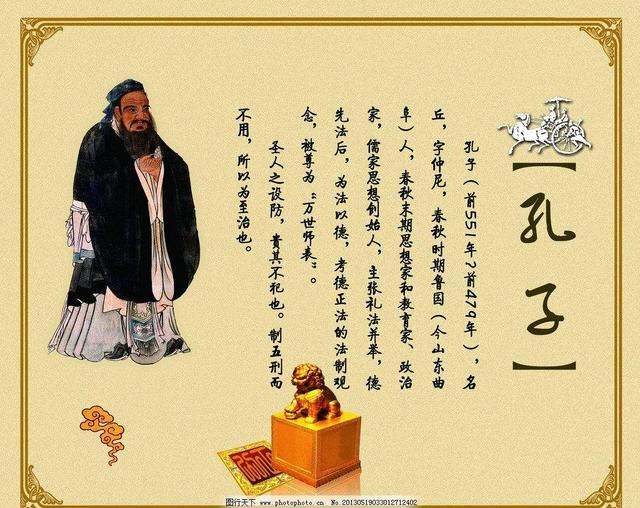 【孔子】
孔子（前551年?前479年），名
丘，字仲尼，春秋时期鲁国（今山东曲
阜）人，春秋末期思想家和教育家、政治
家，儒家思想创始人，主张礼法并举，德
先法后，为法以德，考德正法的法制观
念，被尊为“万世师表”。
圣人之设防，貴其不犯也。制五刑而
不用，所以为至治也。
图行天下 www.photophoto.cn No.20130519033012712402